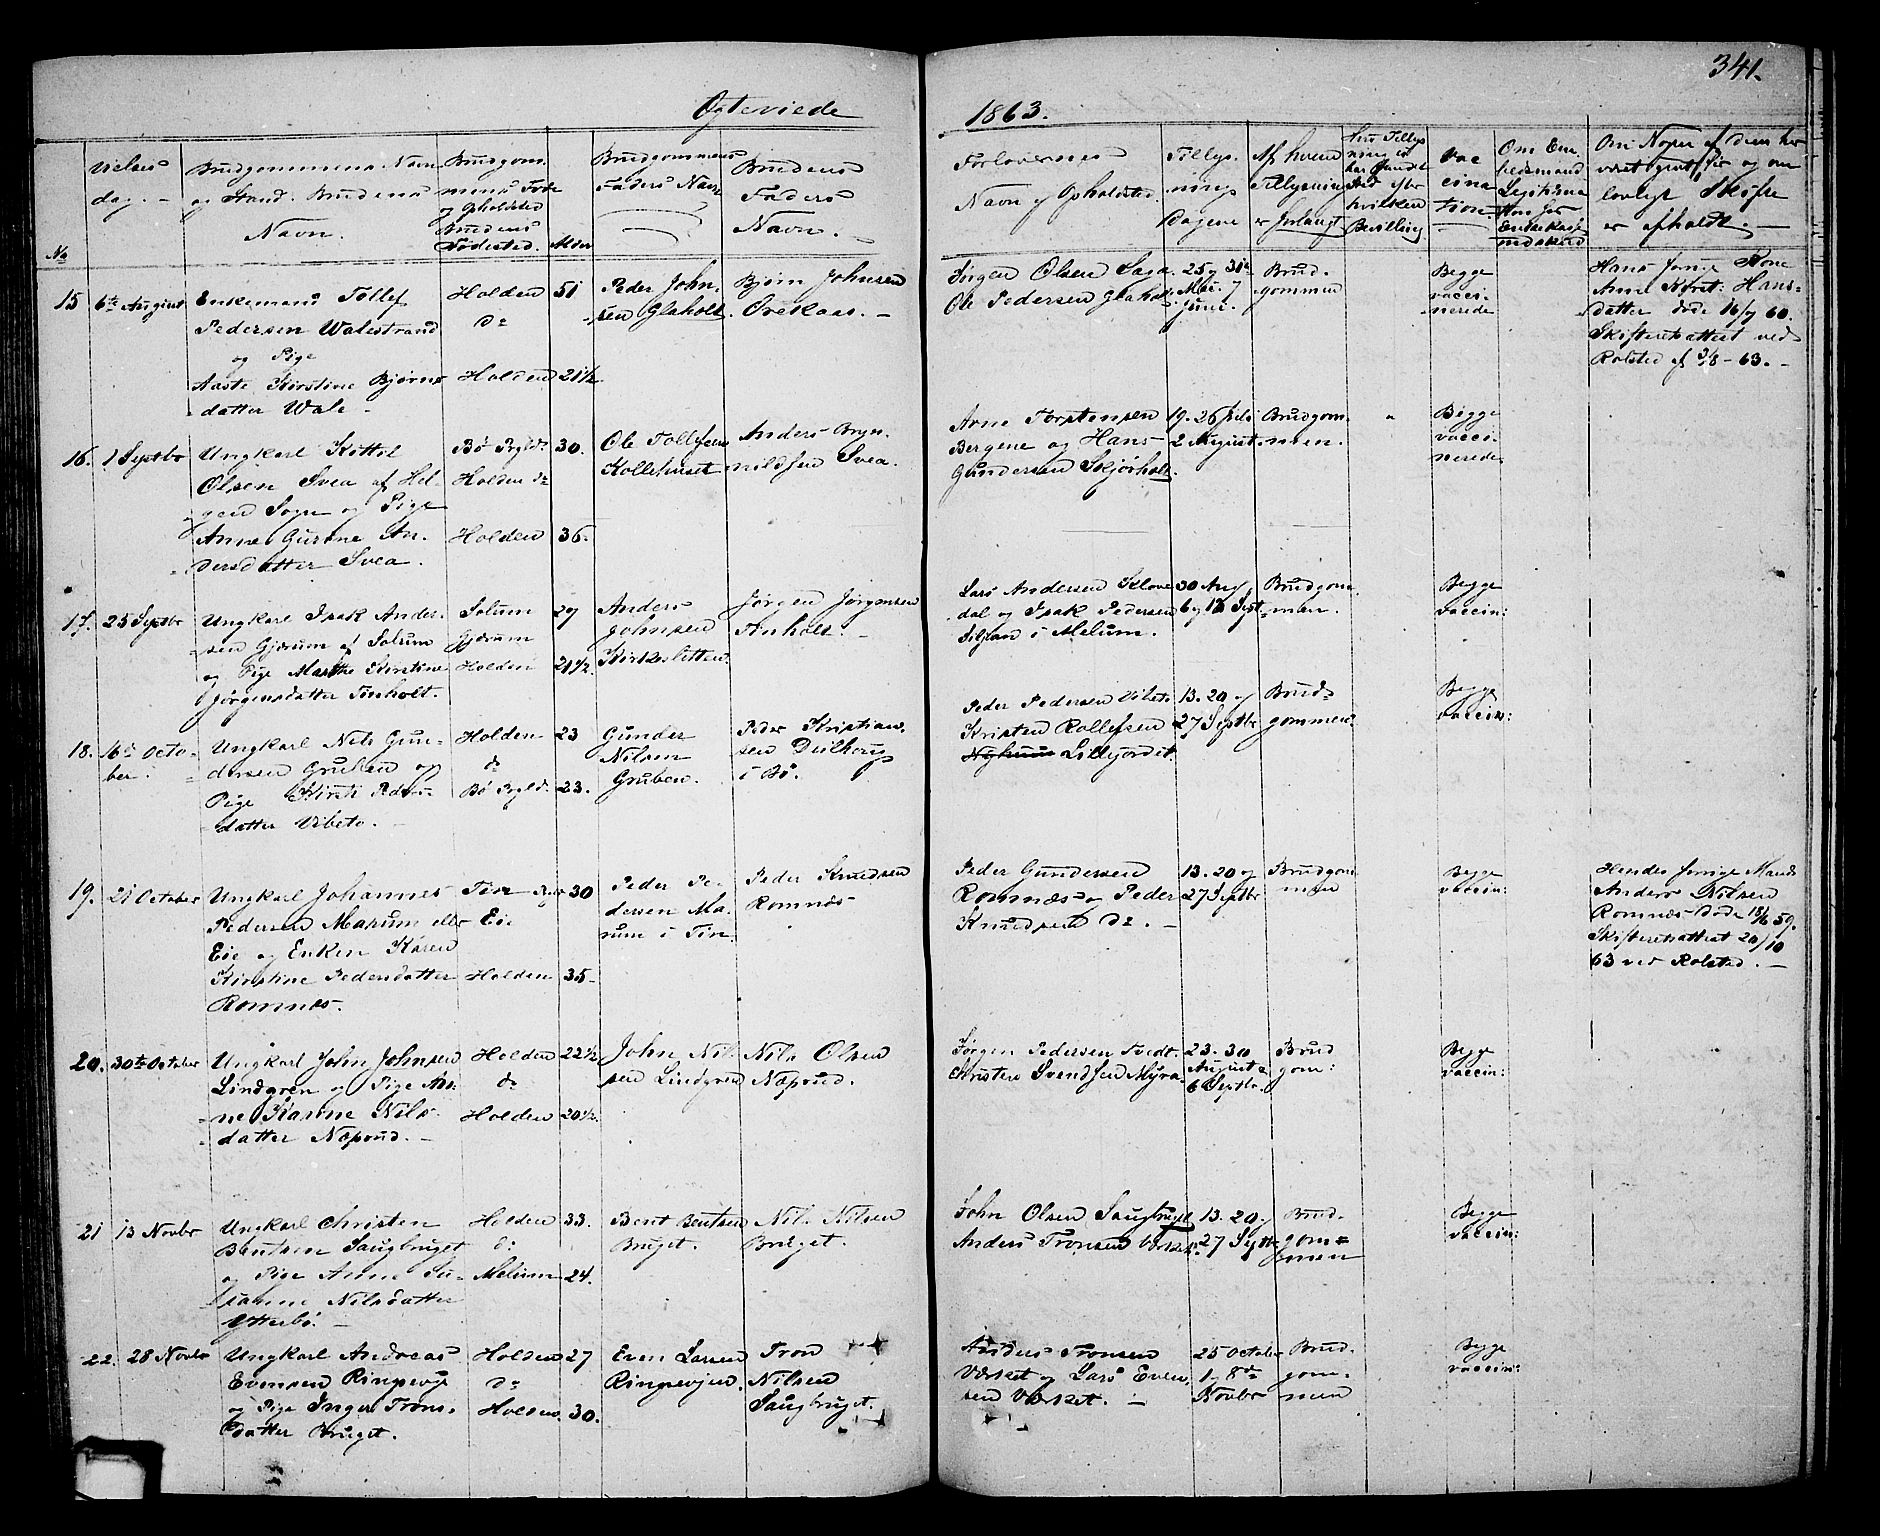 341.
Ægteviede
1863.
No
Vielses
dag.
Brudgommens Navn
og Stand. Brudens
Navn.
Brudgom
mens Føde
og Opholdsted
Brudens
Fødested.
Alder
Brudgommens
Faders Navn
Brudens
Faders
Navn.
Forlovernes
Navn og Opholdsted.
Tillys-
nings
Dagene
Af hvem
Tillysning
er forlangt
hvilken
Bevilling
Vac
cina
tion.
Om Em
bedsmand
er afholdt.
15
6te August
Enkemand Tollef
Pedersen Walestrand
og Pige
Aaste Kirstine Bjørns
datter Wale
Holden
do
Holden
51
21½
Peder John-
sen Glaholt.
Bjørn Johnsen
Ørekaas.
Jørgen Olsen Saga
Ole Pedersen Glaholt
25 og 31te
Mai. 7
Juni.
Brud-
gommen
Begge
vacci-
nerede
Hans forrige Kone
Anne Kirst: Hans-
datter døde 16/7 60.
Skifteretsattest ved
Rolsted af 3/8 - 63.
16.
1 Septbr
Ungkarl Kittil
Olsen Svea af Hel-
gen Sogn og Pige
Anne Gurine An-
dersdatter Svea.
Bø Prgld.
Holden do
Holden
30.
36.
Ole Tollefsen
Kollehuset
Anders Bryn-
nildsen Svea.
Arne Torstensen
Bergene og Hans
Gundersen Skjørholt.
19. 26 Juli
2 August.
Brudgom-
men.
Begge
vacci-
nerede
17.
25 Septbr
Ungkarl Isak Ander-
sen Gjerum af Solum
og Pige Marthe Kirstine
Jørgensdatter Tinholt.
Solum
Gjerum
Holden
27
21½.
Anders
Johnsen
Kirkesletten.
Jørgen Jørgensen
Tinholt.
Lars Andersen Klove
dal og Isak Pedersen
Siljan i Melum.
30 Aug
6 og 13 Sept
Brudgom
men.
Begge
vaccin:
18.
16de Octo-
ber.
Ungkarl Nils Gun-
dersen Gruben og
Pige Kirsti Peders-
datter Vibeto.
Holden
do
Bø Prgld.
23
23.
Gunder
Nilsen
Gruben.
Peder Kristian-
sen
i Bø.
Peder Pedersen Vibeto
Kristen Rollefsen
Lillejordet.
13. 20 og
27 Septbr
Brud-
gommen
Begge
vaccin:
19.
21 October
Ungkarl Johannes
Pedersen Marum eller
Eie og Enken Karen
Kirstine Pedersdatter
Romnæs.
Tin Prgld
Eie
Holden
30
35.
Peder Pe-
dersen Ma-
rum i Tin.
Peder Knudsen
Romnæs
Peder Gundersen
Romnæs og Peder
Knudsen do.
13. 20 og
27 Septbr
Brudgom
men
Begge
vaccin:
Hendes forrige Mand
Anders Nilsen
Romnæs døde 18/6 59.
Skifteretsattest 20/10
63 ved Rolsted.
20.
30te October
Ungkarl John Johnsen
Lindgren og Pige An-
ne Karine Nils-
datter Næsund.
Holden
do
Holden
22½
20½.
John Nil-
sen Lindgren
Nils Olsen
Næsund.
Jørgen Pedersen Tvedt.
Christen Svendsen Myra.
23. 30
August
6 Septbr.
Brud
gom:
Begge
vaccin:
21
13 Novbr
Ungkarl Christen
Bentsen Saugbruget
og Pige Anne Su-
sanne Nilsdatter
Ytterbø.
Holden
do
Melum
33.
24.
Bent Bentsen
Bruget.
Nils Nilsen
Bruget.
John Olsen Saugbruget
Anders Tronsen Verket.
13. 20 og
27 Septbr
Brud-
gom-
men
Begge
vaccin:
22.
28 Novbr
Ungkarl Andreas
Evensen Ringsevje
og Pige Inger Trons-
datter Bruget.
Holden
do
Holden
27
30.
Even Larsen
Ringsevjen.
Tron
Nilsen
Saugbruget.
Anders Tronsen
Verket og Lars Even-
sen Verket.
25 October
1 og 8de
Novbr
Brud-
gom-
men
Begge
vaccin: